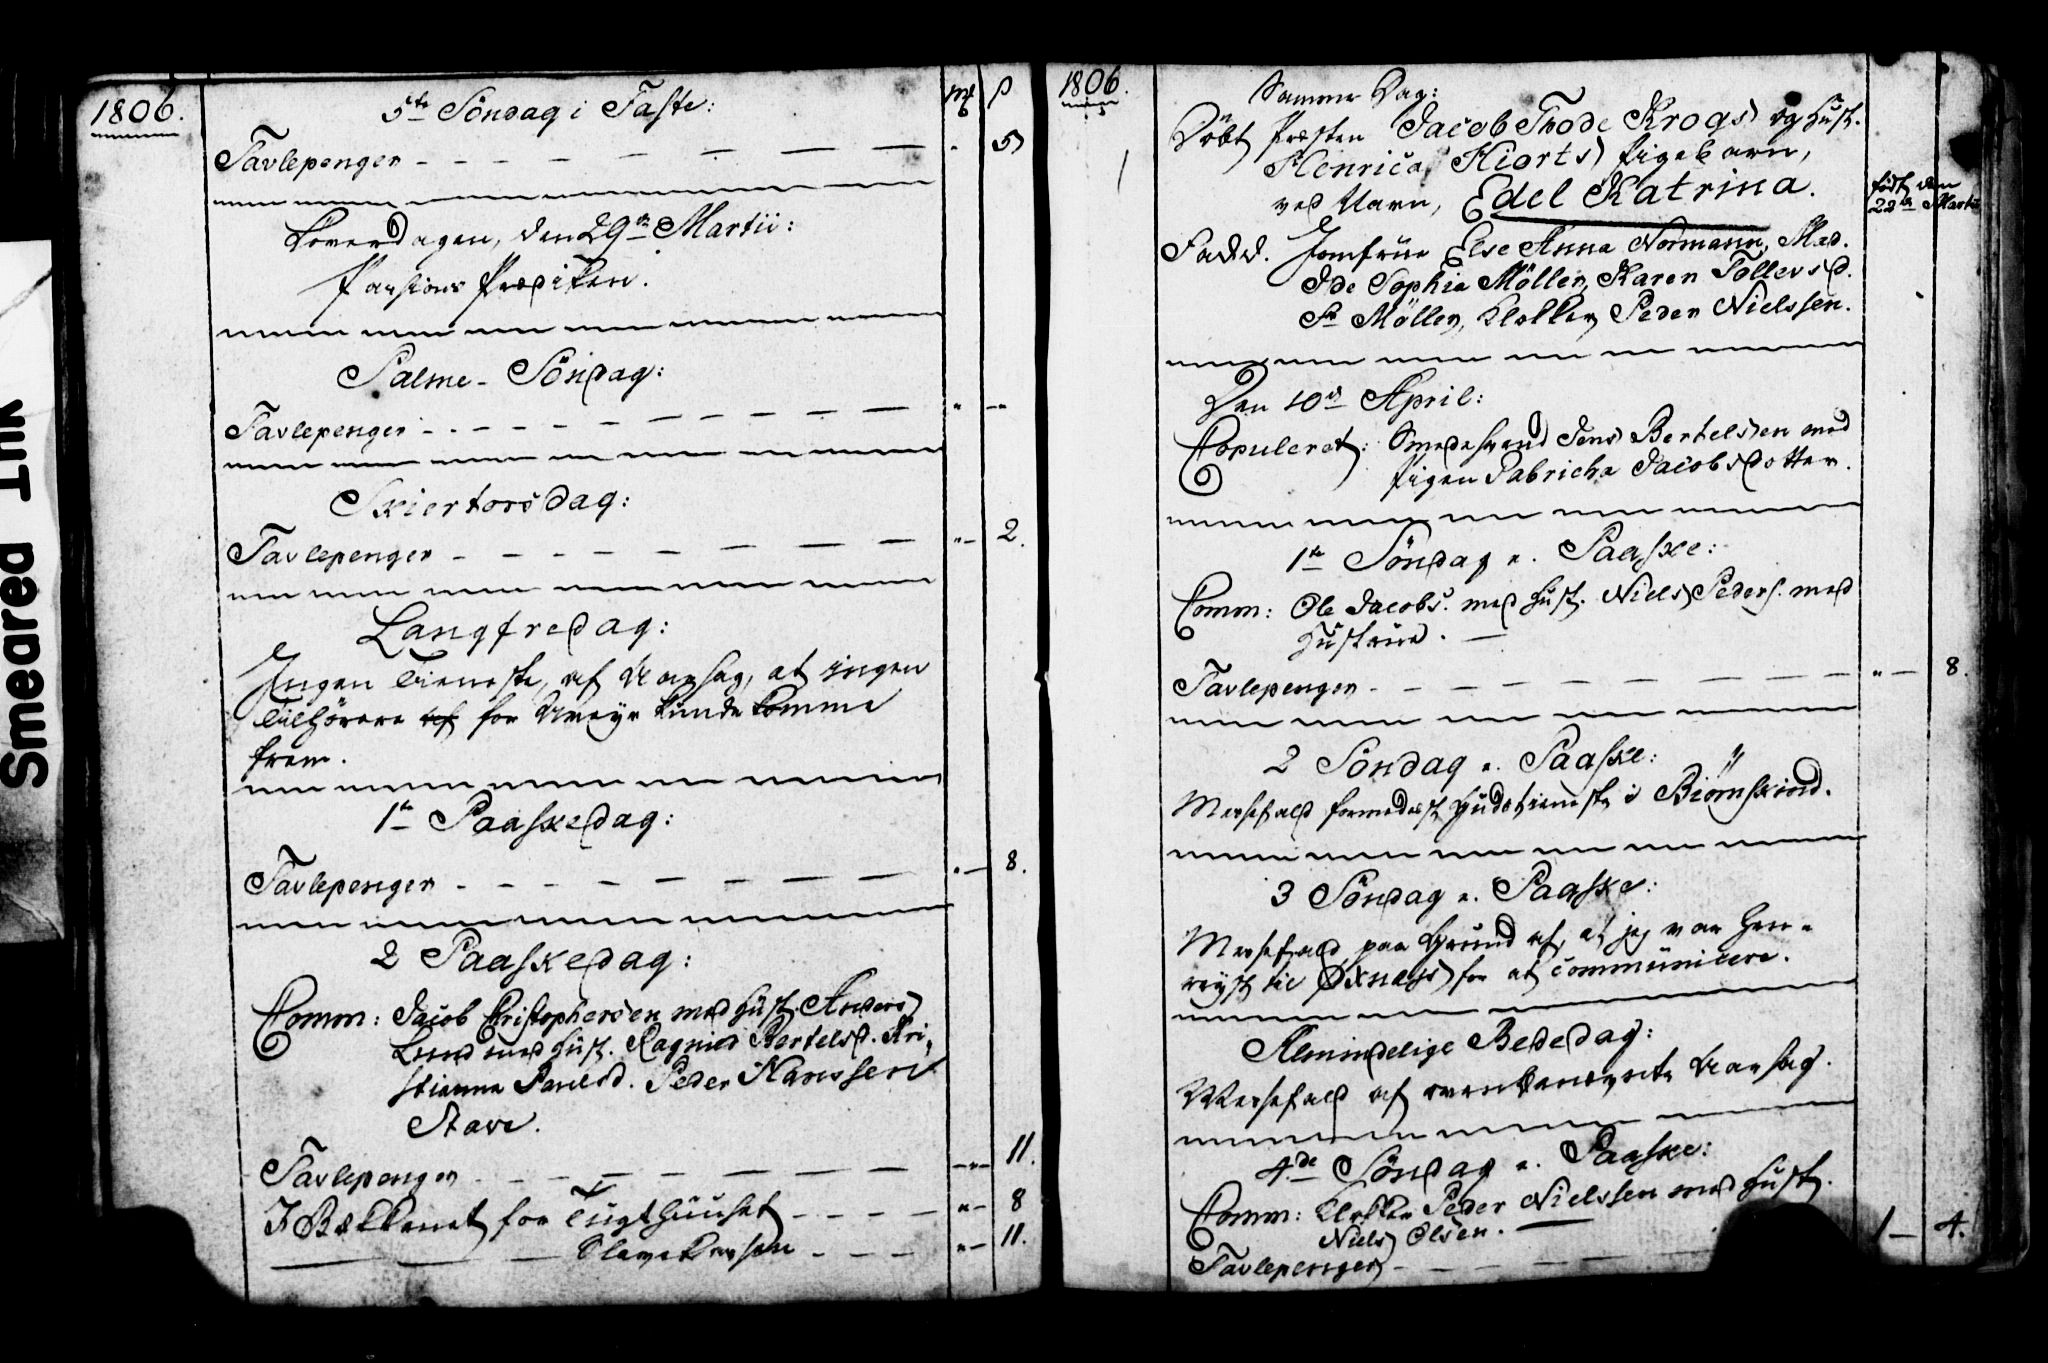 Smeared Ink
1806.
mk
ß
5te Söndag i Faste:
Tavlepenger - - - - - - - - " 5
Löverdagen, den 29de Martii:
Passions Prædiken.
Palme- Söndag:
Tavlepenger - - - - - - - - " --
Skiertorsdag:
Tavlepenger - - - - - - - - "- 2.
Langfredag:
Ingen Tieneste, af Aarsag, at ingen
Tilhörere for Uveyr kunde komme
frem.
1te Paaskedag:
Tavlepenger - - - - - - - - "- 8.
2 Paaskedag:
Comm: Jacob Christophersen med Hust. Anders
Lund med Hust. Ragnild Bertelsd. Kri-
stianna Paulsd. Peder Hanssen
Stave.
Tavlepenger - - - - - - - - "- 11.
I Bekkenet for Tugthuuset - - - - "- 8
— — — Slavekassen - - - - "- 11.
1806.
Samme Dag:
1
Döbt Præsten Jacob Thode Krogs og Hust.
Henrica Hiorts Pigebarn,
ved Navn, Edel Katrina.
födt den
22de Martii
Fadd. Jomfrue Else Anna Normann, Mad.
Ide Sophia Möller, Karen Tollevsd.
Sr Möller, Klokker Peder Nielssen.
Den 10de April:
Copuleret: Smedesvend Jens Bertelsen med
Pigen Fabricha Jacobsdotter.
1te Söndag e. Paaske:
Comm: Ole Jacobs. med Hust. Niels Peders. med
Hustrue. —
Tavlepenger - - - - - - - - "- 8.
2 Söndag e. Paaske:
Messefald formedelst Gudstieneste i Biörnskind.
3 Söndag e. Paaske:
Messefald paa Grund af, at jeg var hen-
reyst til Øxnæs for at communicere.
Almindelige Bededag:
Messefald af ovenbenævnte Aarsag.
4de Söndag e. Paaske:
Comm: Klokker Peder Nielssen med Hust.
Niels Olsen. —
Tavlepenger - - - - 1 - 4.